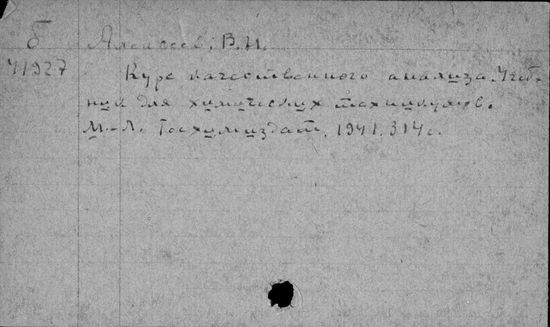 б Алексеев, В.Н.
41927 Курс качественного анализа. Учеб-
ник для химических техникумов.
М.-Л. Госхимиздат, 1941, 314 с.